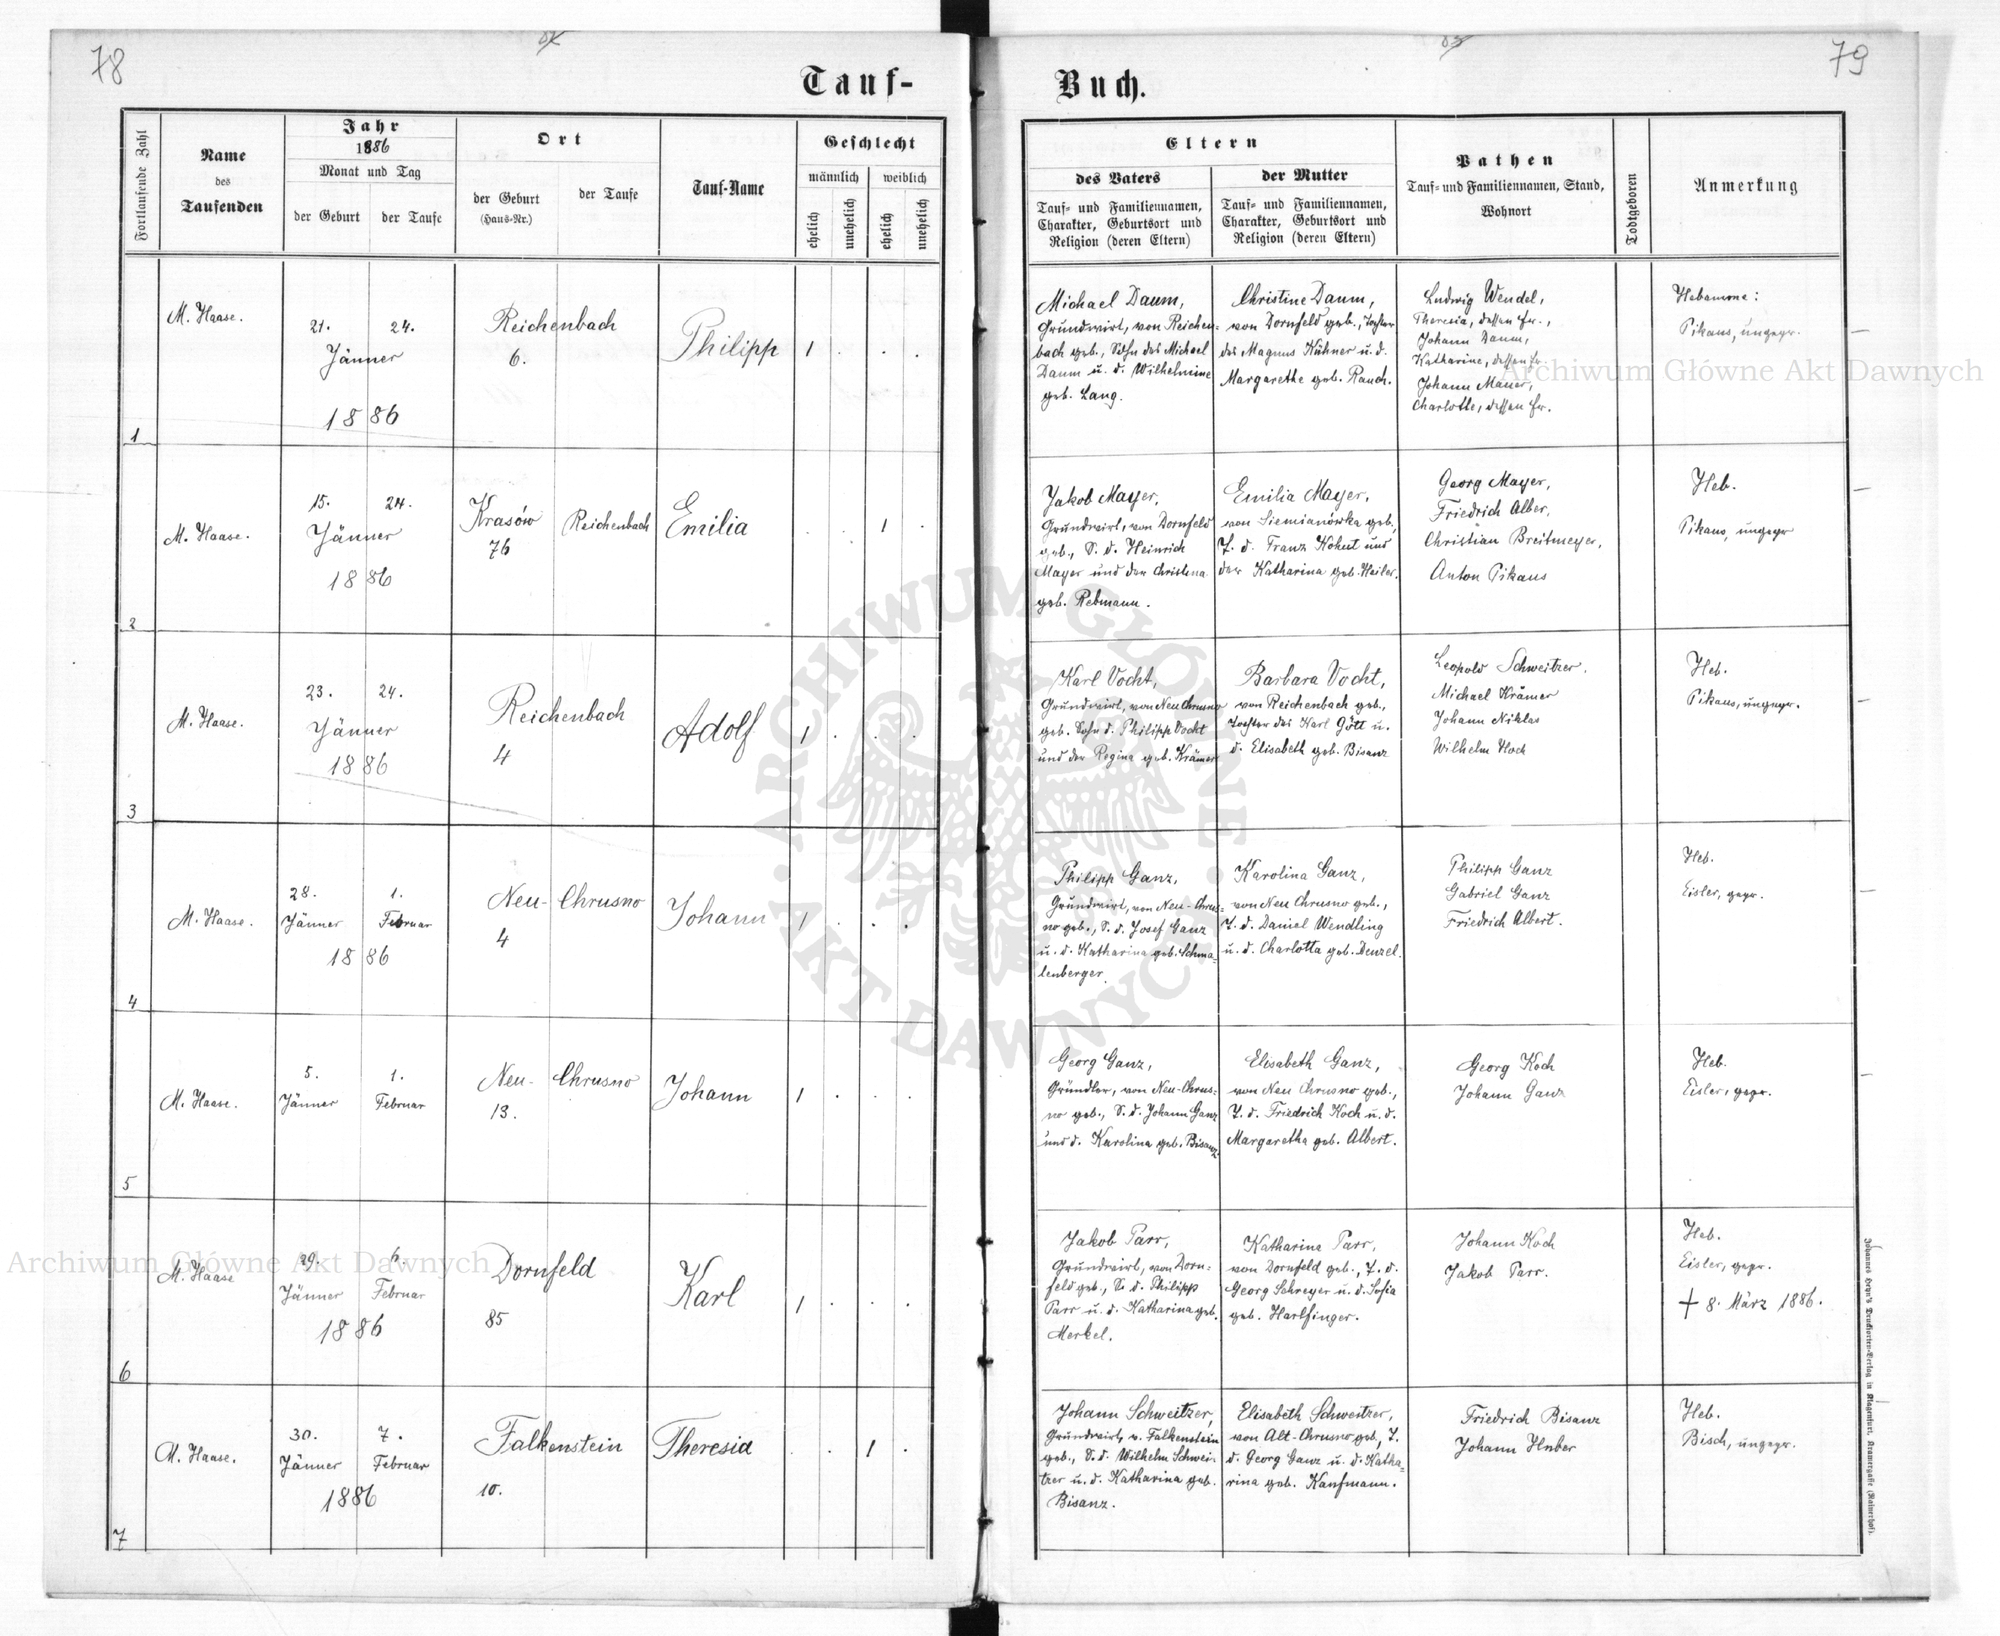 78
Tauf-
Fortlaufende Zahl
Name
des
Taufenden
Jahr
1886
Monat und Tag
der Geburt
der Taufe
Ort
der Geburt
(Haus-Nr.)
der Taufe
Tauf-Name
Geschlecht
männlich
weiblich
ehelich
unehelich
ehelich
unehelich
1
M. Haase.
21. 24.
Jänner
1886
Reichenbach
6.
Philipp
1 . . .
2
M. Haase.
15. 24.
Jänner
1886
Krasów
76
Reichenbach
Emilia
. . 1 .
3
M. Haase.
23. 24.
Jänner
1886
Reichenbach
4
Adolf
1 . . .
4
M. Haase.
28. 1.
Jänner Februar
1886
Neu- Chrusno
4
Johann
1 . . .
5
M. Haase.
5. 1.
Jänner Februar
Neu- Chrusno
13.
Johann
1 . . .
6
M. Haase
29. 6.
Jänner Februar
1886
Dornfeld
85
Karl
1 . . .
7
M. Haase.
30. 7.
Jänner Februar
1886
Falkenstein
10.
Theresia
. . 1 .
79
Buch.
Eltern
des Vaters
Tauf- und Familiennamen,
Charakter, Geburtsort und
Religion (deren Eltern)
der Mutter
Tauf- und Familiennamen,
Charakter, Geburtsort und
Religion (deren Eltern)
Pathen
Tauf- und Familiennamen, Stand,
Wohnort
Todtgeboren
Anmerkung
Michael Daum,
Grundwirt, von Reichen-
bach geb., Sohn des Michael
Daum u. d. Wilhelmine
geb. Lang.
Christine Daum,
von Dornfeld geb., Tochter
des Magnus Kühner u. d.
Margarethe geb. Rauch.
Ludwig Wendel,
Theresia, dessen Fr.,
Johann Daum,
Katharine, dessen Fr.
Johann Mauer,
Charlotte, dessen Fr.
Hebamme:
Pikaus, ungepr.
Jakob Mayer,
Grundwirt, von Dornfeld
geb., S. d. Heinrich
Mayer und der Christina
geb. Rebmann.
Emilia Mayer,
von Siemianówka geb.,
T. d. Franz Kohut und
der Katharina geb. Heiler.
Georg Mayer,
Friedrich Alber,
Christian Breitmeyer,
Anton Pikaus
Heb.
Pikaus, ungepr
Karl Vocht,
Grundwirt, von Neu Chrusno
geb. Sohn d. Philipp Vocht
und der Regina geb. Krämer
Barbara Vocht,
von Reichenbach geb.,
Tochter des Karl Gött u.
d. Elisabeth geb. Bisanz
Leopold Schweitzer.
Michael Krämer
Johann Niklas
Wilhelm Hoch
Heb.
Pikaus, ungepr.
Philipp Ganz,
Grundwirt, von Neu-Chrus-
no geb., S. d. Josef Ganz
u. d. Katharina geb. Schma-
lenberger.
Karolina Ganz,
von Neu Chrusno geb.,
T. d. Daniel Wendling
u. d. Charlotta geb. Denzel.
Philipp Ganz
Gabriel Ganz
Friedrich Albert.
Heb.
Eisler, gepr.
Georg Ganz,
Gründler, von Neu-Chrus-
no geb., S. d. Johann Ganz
und d. Karolina geb. Bisanz
Elisabeth Ganz,
von Neu Chrusno geb.,
T. d. Friedrich Koch u. d.
Margaretha geb. Albert.
Georg Koch
Johann Ganz
Heb.
Eisler, gepr.
Jakob Parr,
Grundwirt, von Dorn-
feld geb., S. d. Philipp
Parr u. d. Katharina geb.
Merkel.
Katharina Parr,
von Dornfeld geb., T. d.
Georg Schreyer u. d. Sofia
geb. Harlfinger.
Johann Koch
Jakob Parr.
Heb.
Eisler, gepr.
† 8. März 1886.
Johann Schweitzer,
Grundwirt, v. Falkenstein
geb., S. d. Wilhelm Schwei-
tzer u. d. Katharina geb.
Bisanz.
Elisabeth Schweitzer,
von Alt-Chrusno geb., T.
d. Georg Ganz u. d. Katha-
rina geb. Kaufmann.
Friedrich Bisanz
Johann Huber
Heb.
Bisch, ungepr.
Johannes Heyn's Drucksorten-Verlag in Klagenfurt, Kramergasse (Rainerhof).
Archiwum Główne Akt Dawnych
Archiwum Główne Akt Dawnych
ARCHIWUM GŁÓWNE · AKT DAWNYCH ·